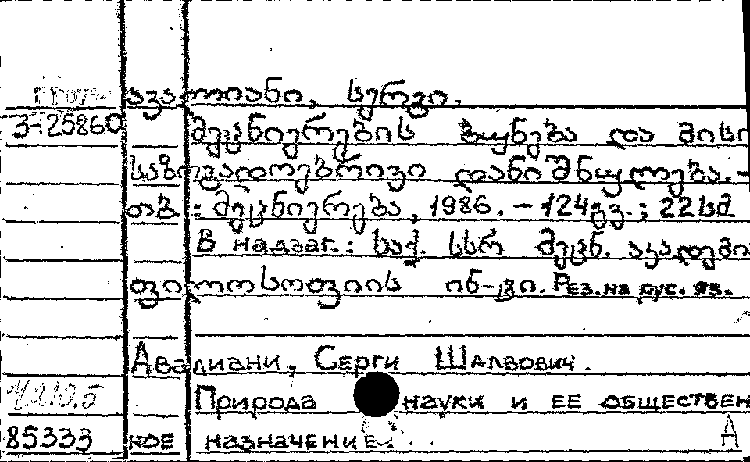 ავალიანი, სერგი.
3-25860 მეცნიერების ბუნება და მისი
საზოგადოებრივი დანიშნულება. -
თბ.: მეცნიერება, 1986. - 124გვ.; 22სმ
В надзаг.: საქ. სსრ მეცნ. აკადემი
ფილოსოფიის ინ-ტი. Рез. на рус. яз.
Авалиани, Серги Шалвович.
Природа науки и ее обществен
85333 ное назначение. . . А